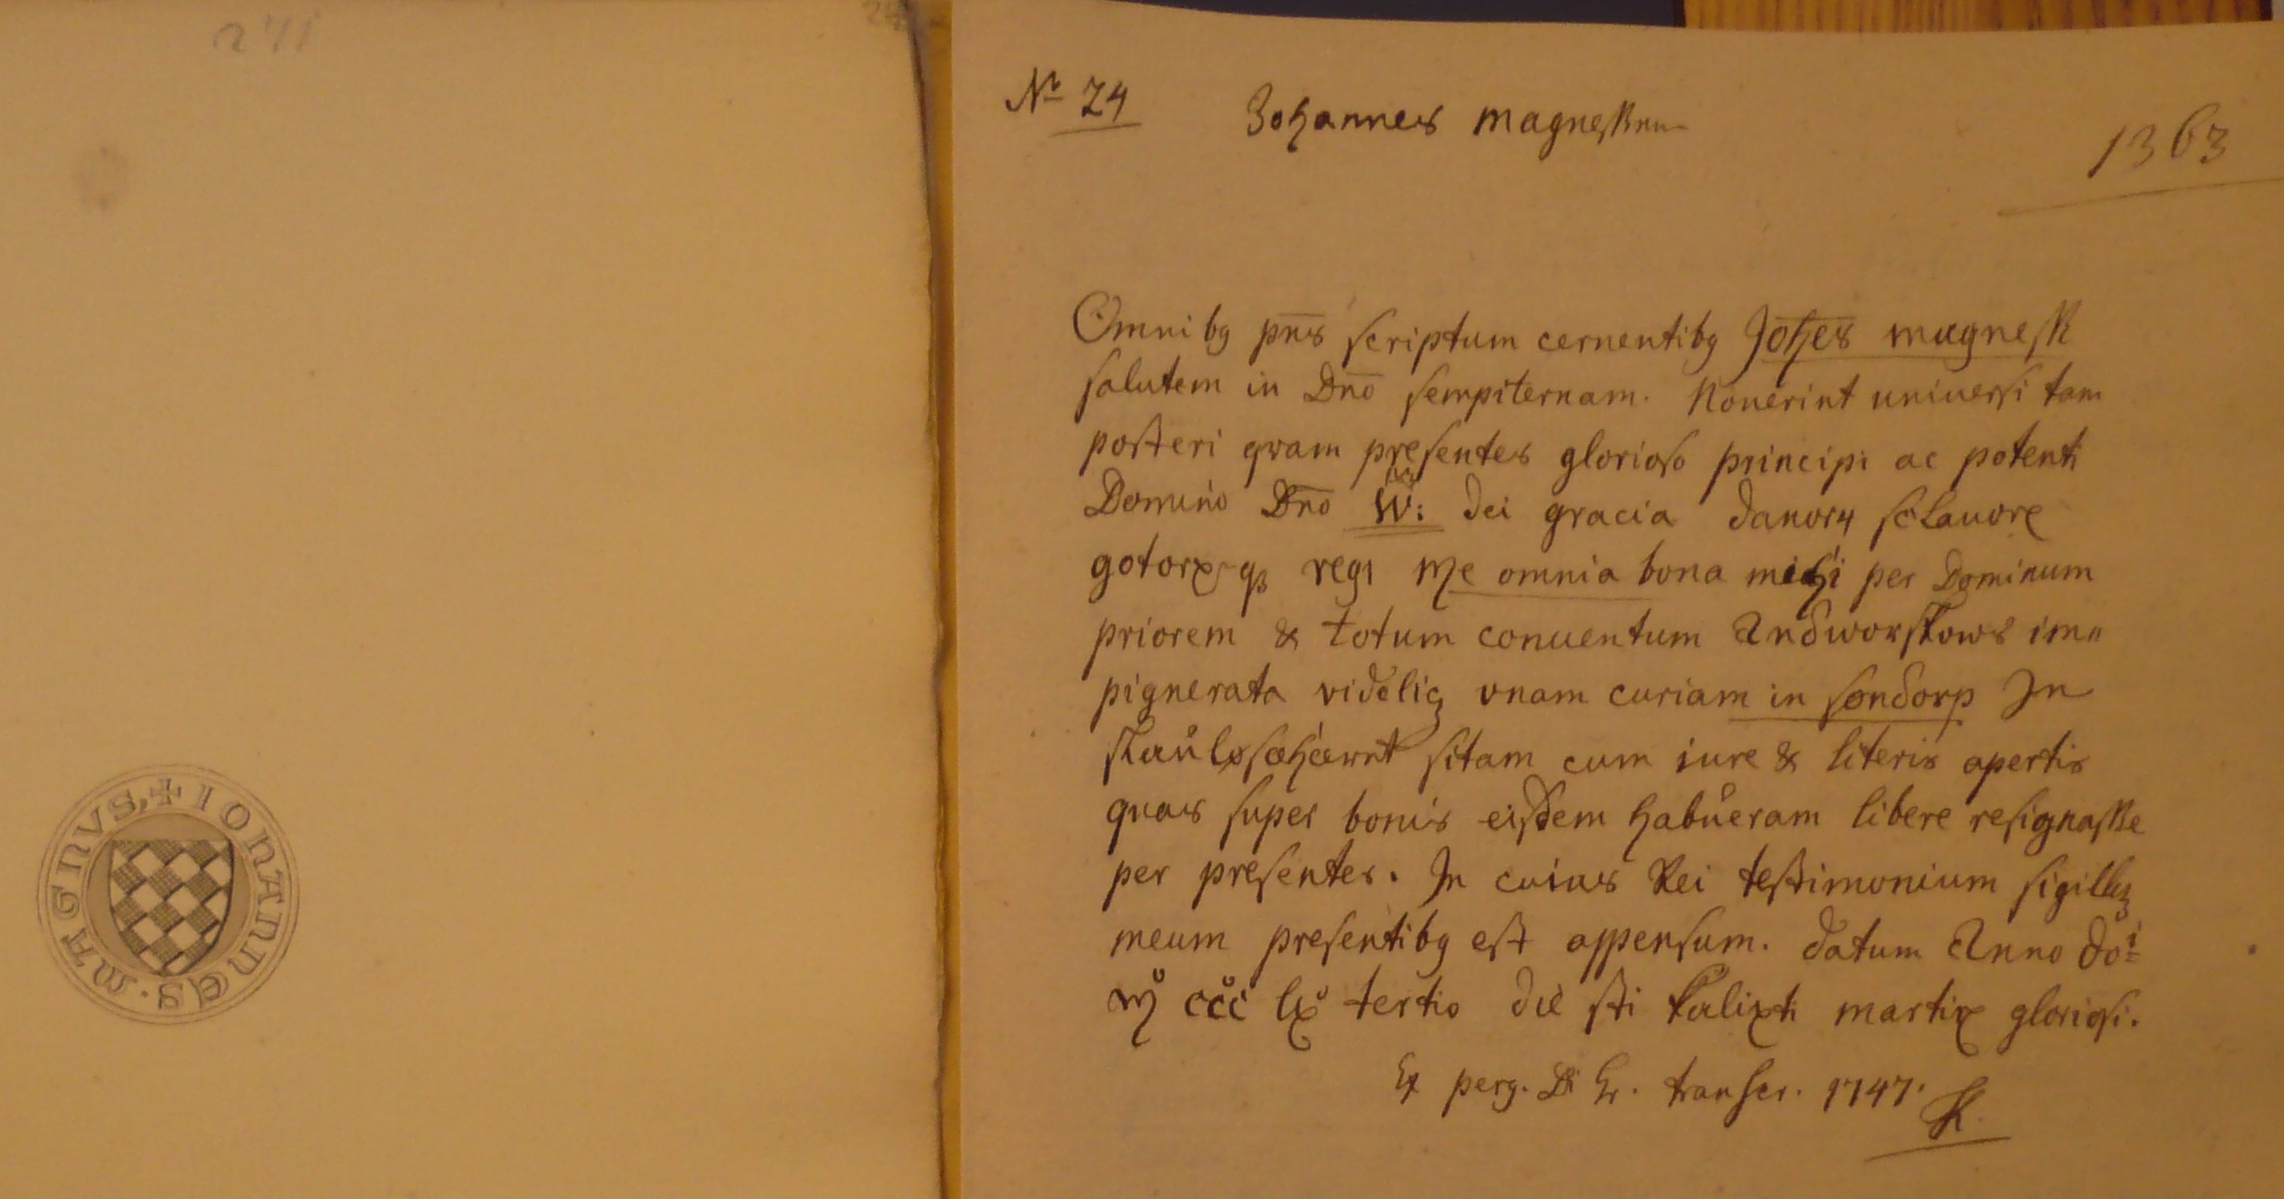 241
Nr 24
Johannes magnessnn
1363
Omnibꝫ p̄ns scriptum cernentibꝫ Joh̄es magness
salutem in Dn̄o sempiternam. Nouerint uniuersi tam
posteri qvam presentes glorioso principi ac potenti
Domino Dn̄o W: dei gracia danorꝝ sclauorꝝ
gotorꝝ qꝫ regi me omnia bona michi per Dominum
priorem & totum conuentum Andworskows im„
pignerata videlicꝫ vnam curiam in søndorp In
sitam cum iure & literis apertis
quas super bonis eisdem habueram libere resignasse
per presentes. In cuius Rei testimonium sigillꝫ
meum presentibꝫ est appensum. datum Anno doi=
mͦ cccͦ lxͦ tertio die sti kalixti martirꝭ gloriosi.
Ex perg. transcr. 1747.
+ IOHANNES . MAGNVS.